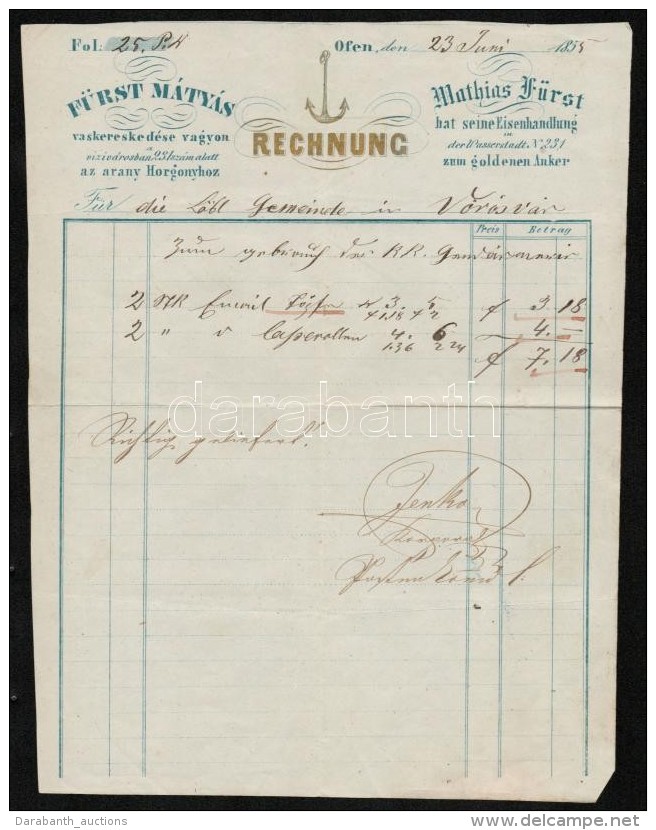 Fol. 25.
Ofen, den 23 Juni 1855
FÜRST MÁTYÁS
vaskereskedése vagyon
a
vizivárosban 231 szám alatt
az arany Horgonyhoz
RECHNUNG
Mathias Fürst
hat seine Eisenhandlung
in
der Wasserstadt N. 231
zum goldenen Anker
Für die Löbl Gemeinde in Vörösvár
Preis Betrag
Zum gebrauch der KK. Gendarmerie
2 Stk 3. f 3.18
2 " Casserollen 4. 6 4.–
1.36 2 24 f 7.18
darabanth
Richtig geliefert.
Jenko
Korporal
Darabanth_auctions
www.delcampe.net